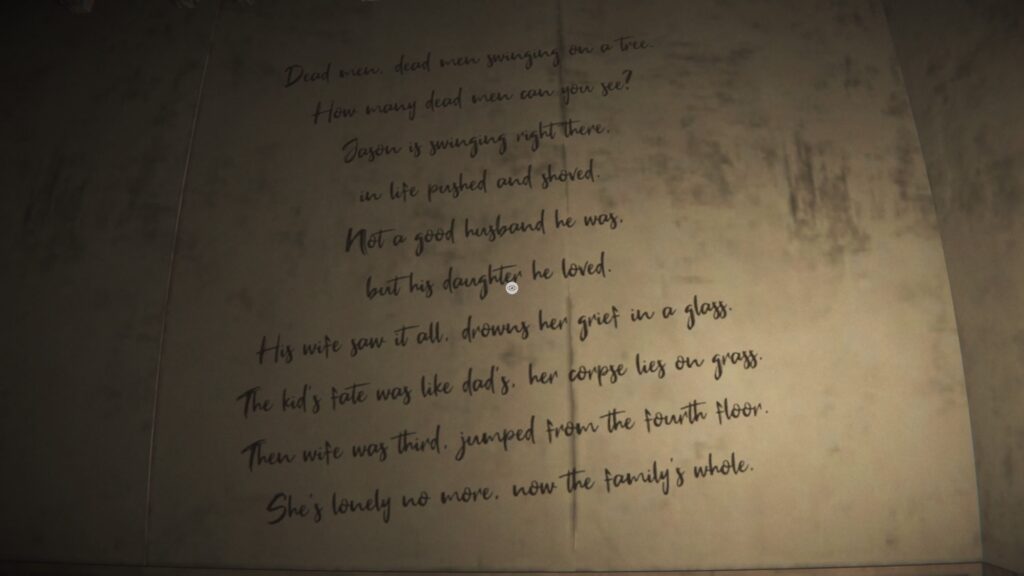 Dead men, dead men swinging on a tree.
How many dead men can you see?
Jason is swinging right there,
in life pushed and shoved.
Not a good husband he was,
but his daughter he loved.
His wife saw it all, drowns her grief in a glass.
The kid's fate was like dad's, her corpse lies on grass.
Then wife was third, jumped from the fourth floor.
She's lonely no more, now the family's whole.